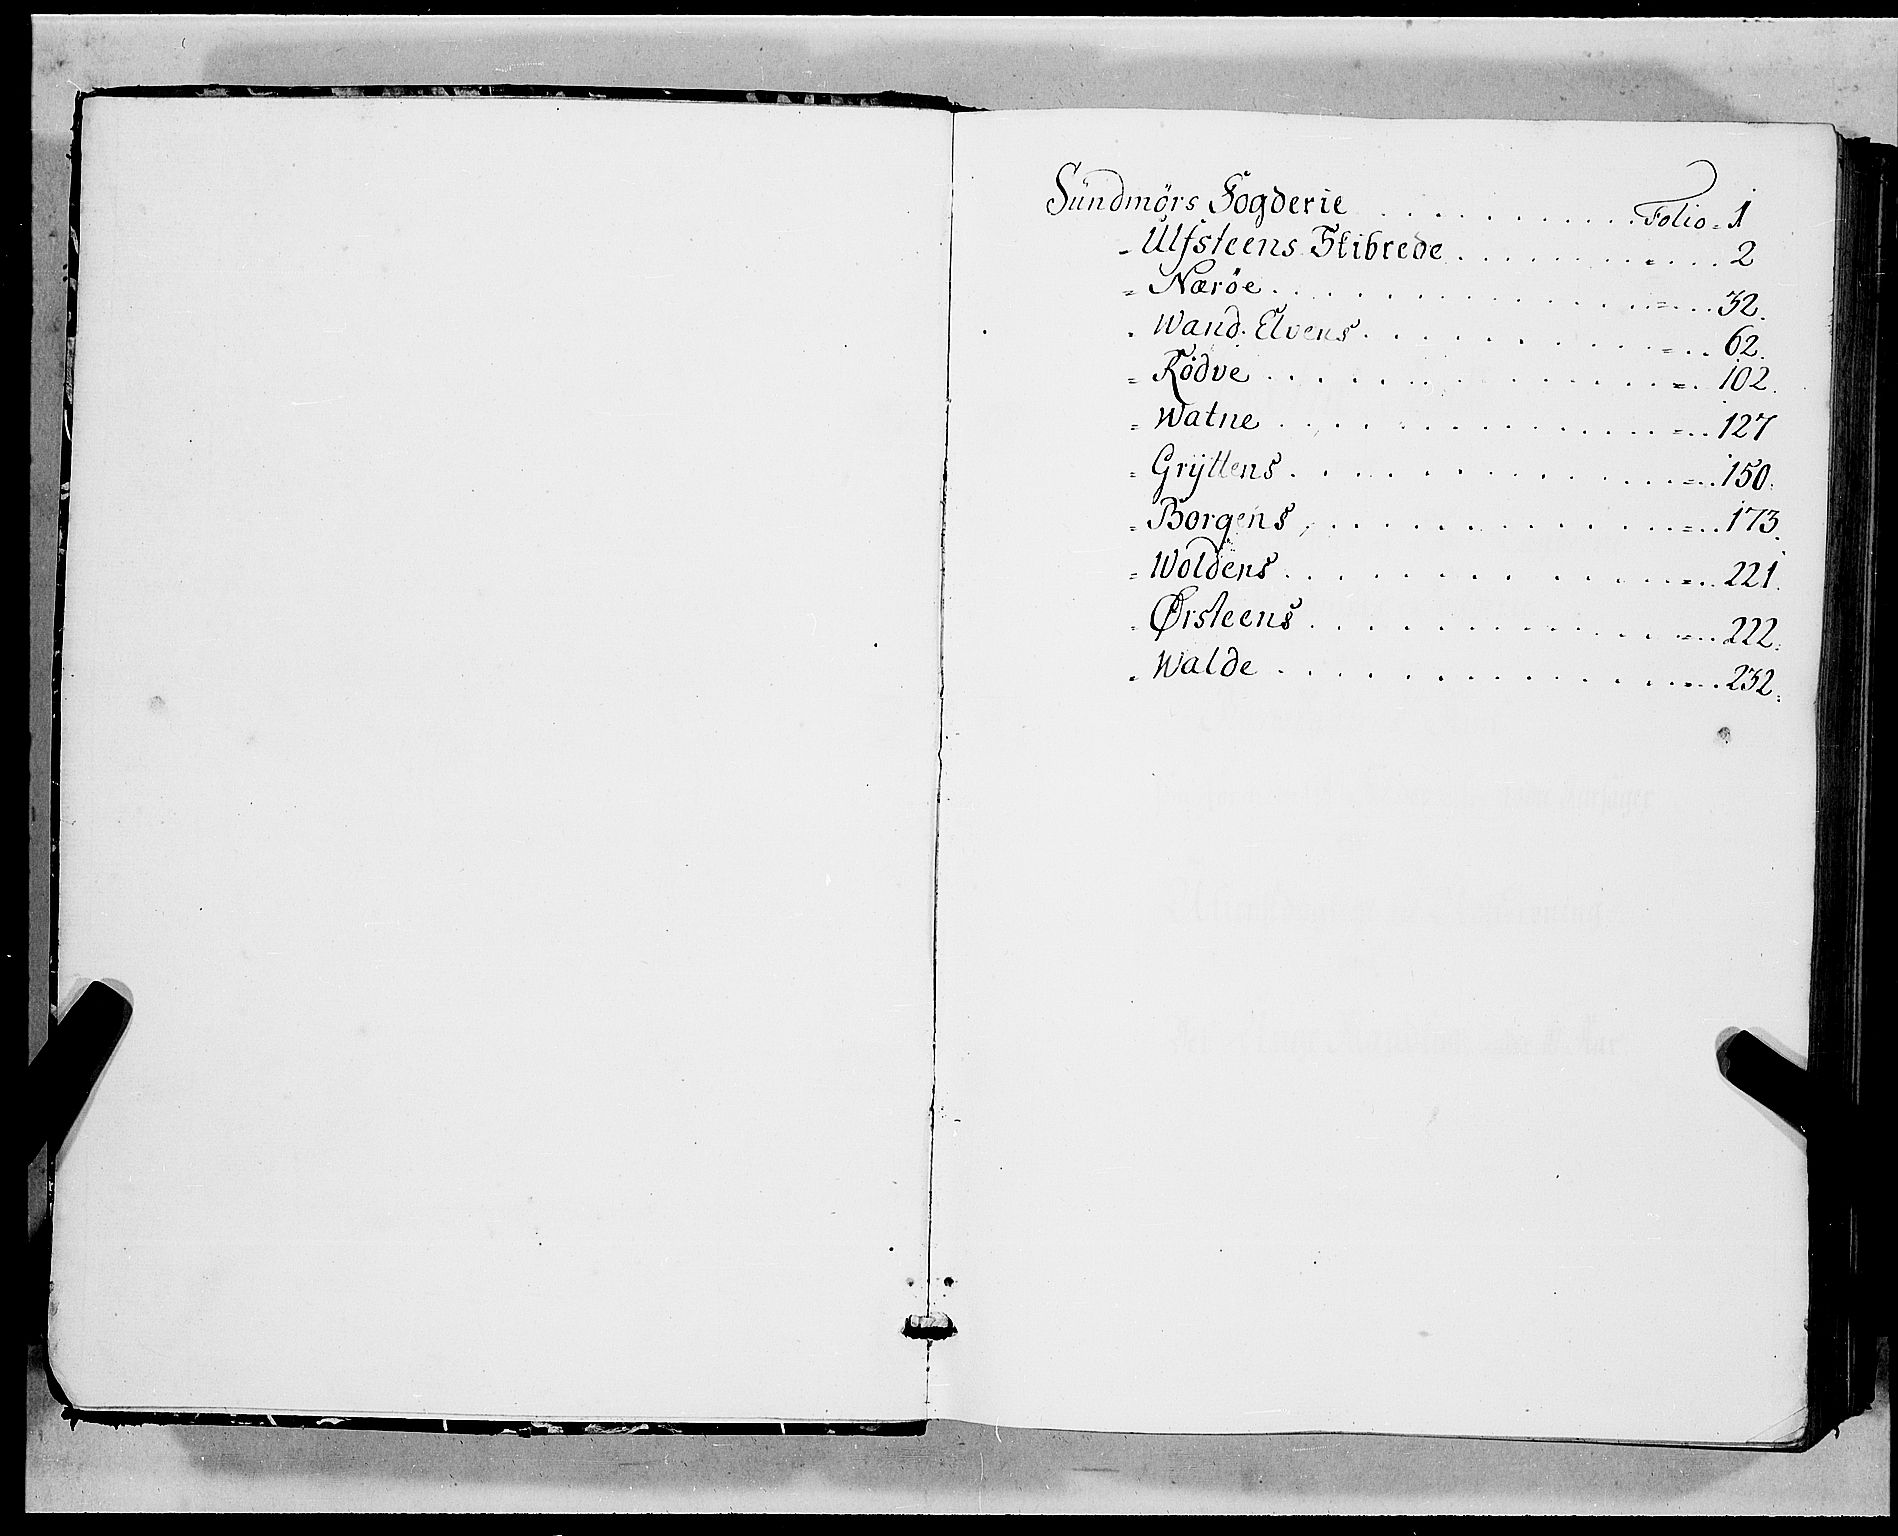 Sündmörs Fogderie . . . . . . . . . Folio = 1
= Ulfsteens Skibrede . . . . . . = . . . 2
= Nærøe . . . . . . . . . . = . . . 32.
= Wand. Elvens . . . . . . . . . = . . 62.
= Rödve . . . . . . . . . . = . . 102.
= Watne . . . . . . . . . . = . . 127
= Grÿttens . . . . . . . . . . = . . 150.
= Borgens . . . . . . . . . . = . . 173.
= Woldens . . . . . . . . . . = . . 221.
= Ørsteens . . . . . . . . . . = . . 222.
= Walde . . . . . . . . . . = . . 232.